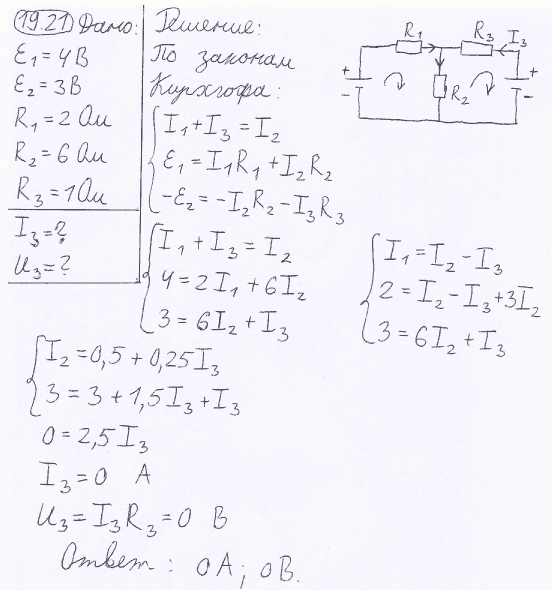 19.21 Дано:
ε₁ = 4 В
ε₂ = 3 В
R₁ = 2 Ом
R₂ = 6 Ом
R₃ = 1 Ом
I₃ = ?
U₃ = ?
Решение:
По законам
Кирхгофа:
I₁ + I₃ = I₂
ε₁ = I₁R₁ + I₂R₂
-ε₂ = -I₂R₂ - I₃R₃
I₁ + I₃ = I₂
4 = 2I₁ + 6I₂
3 = 6I₂ + I₃
R₁ R₃ I₃
+ +
- R₂ -
I₁ = I₂ - I₃
2 = I₂ - I₃ + 3I₂
3 = 6I₂ + I₃
I₂ = 0,5 + 0,25I₃
3 = 3 + 1,5I₃ + I₃
0 = 2,5I₃
I₃ = 0 А
U₃ = I₃R₃ = 0 В
Ответ: 0А; 0В.